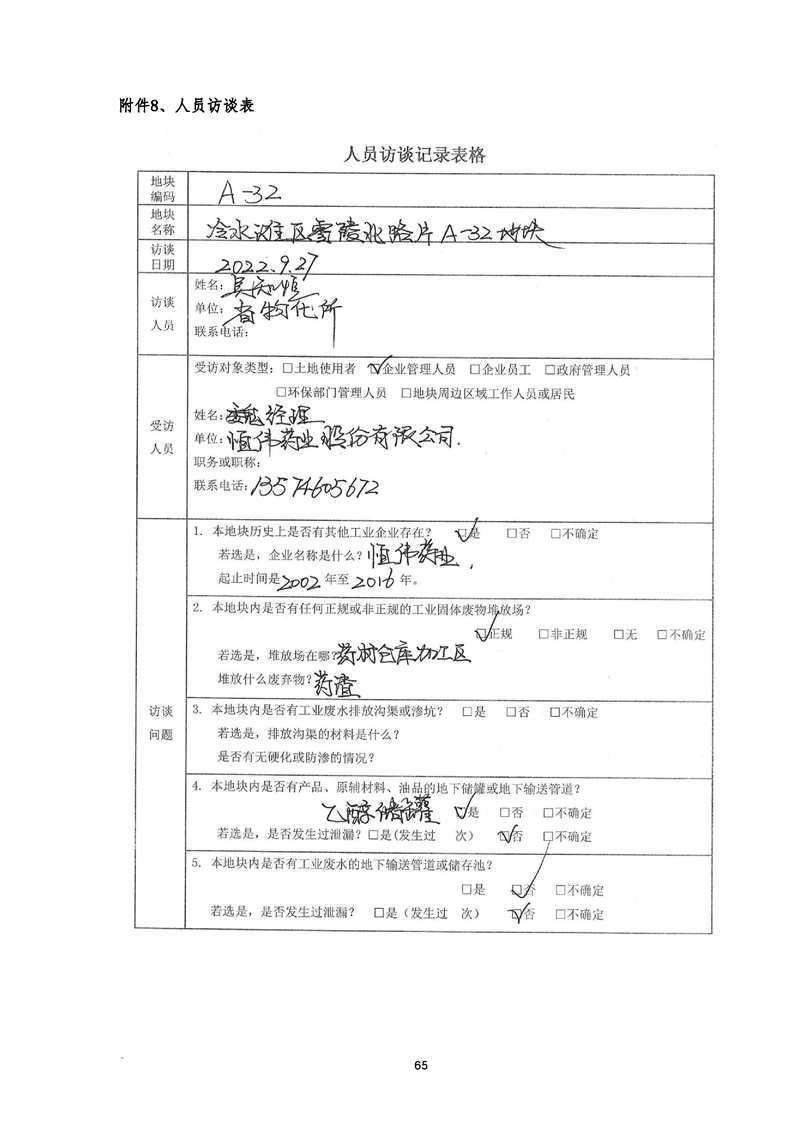 附件8、人员访谈表
人员访谈记录表格
地块
编码
A-32
地块
名称
冷水滩区零陵北路片A-32地块
访谈
日期
2022.9.27
访谈
人员
姓名：
单位：省物化所
联系电话：
受访
人员
受访对象类型：□土地使用者 ☑企业管理人员 □企业员工 □政府管理人员
□环保部门管理人员 □地块周边区域工作人员或居民
姓名：经理
单位：恒伟药业股份有限公司.
职务或职称：
联系电话：13574605672
访谈
问题
1. 本地块历史上是否有其他工业企业存在？ ☑是 □否 □不确定
若选是，企业名称是什么？恒伟药业，
起止时间是2002年至2016年。
2. 本地块内是否有任何正规或非正规的工业固体废物堆放场？
☑正规 □非正规 □无 □不确定
若选是，堆放场在哪？药材仓库加工区
堆放什么废弃物？药渣
3. 本地块内是否有工业废水排放沟渠或渗坑？ □是 □否 □不确定
若选是，排放沟渠的材料是什么？
是否有无硬化或防渗的情况？
4. 本地块内是否有产品、原辅材料、油品的地下储罐或地下输送管道？
乙醇储罐 ☑是 □否 □不确定
若选是，是否发生过泄漏？□是(发生过 次) ☑否 □不确定
5. 本地块内是否有工业废水的地下输送管道或储存池？
□是 ☑否 □不确定
若选是，是否发生过泄漏？ □是（发生过 次） ☑否 □不确定
65